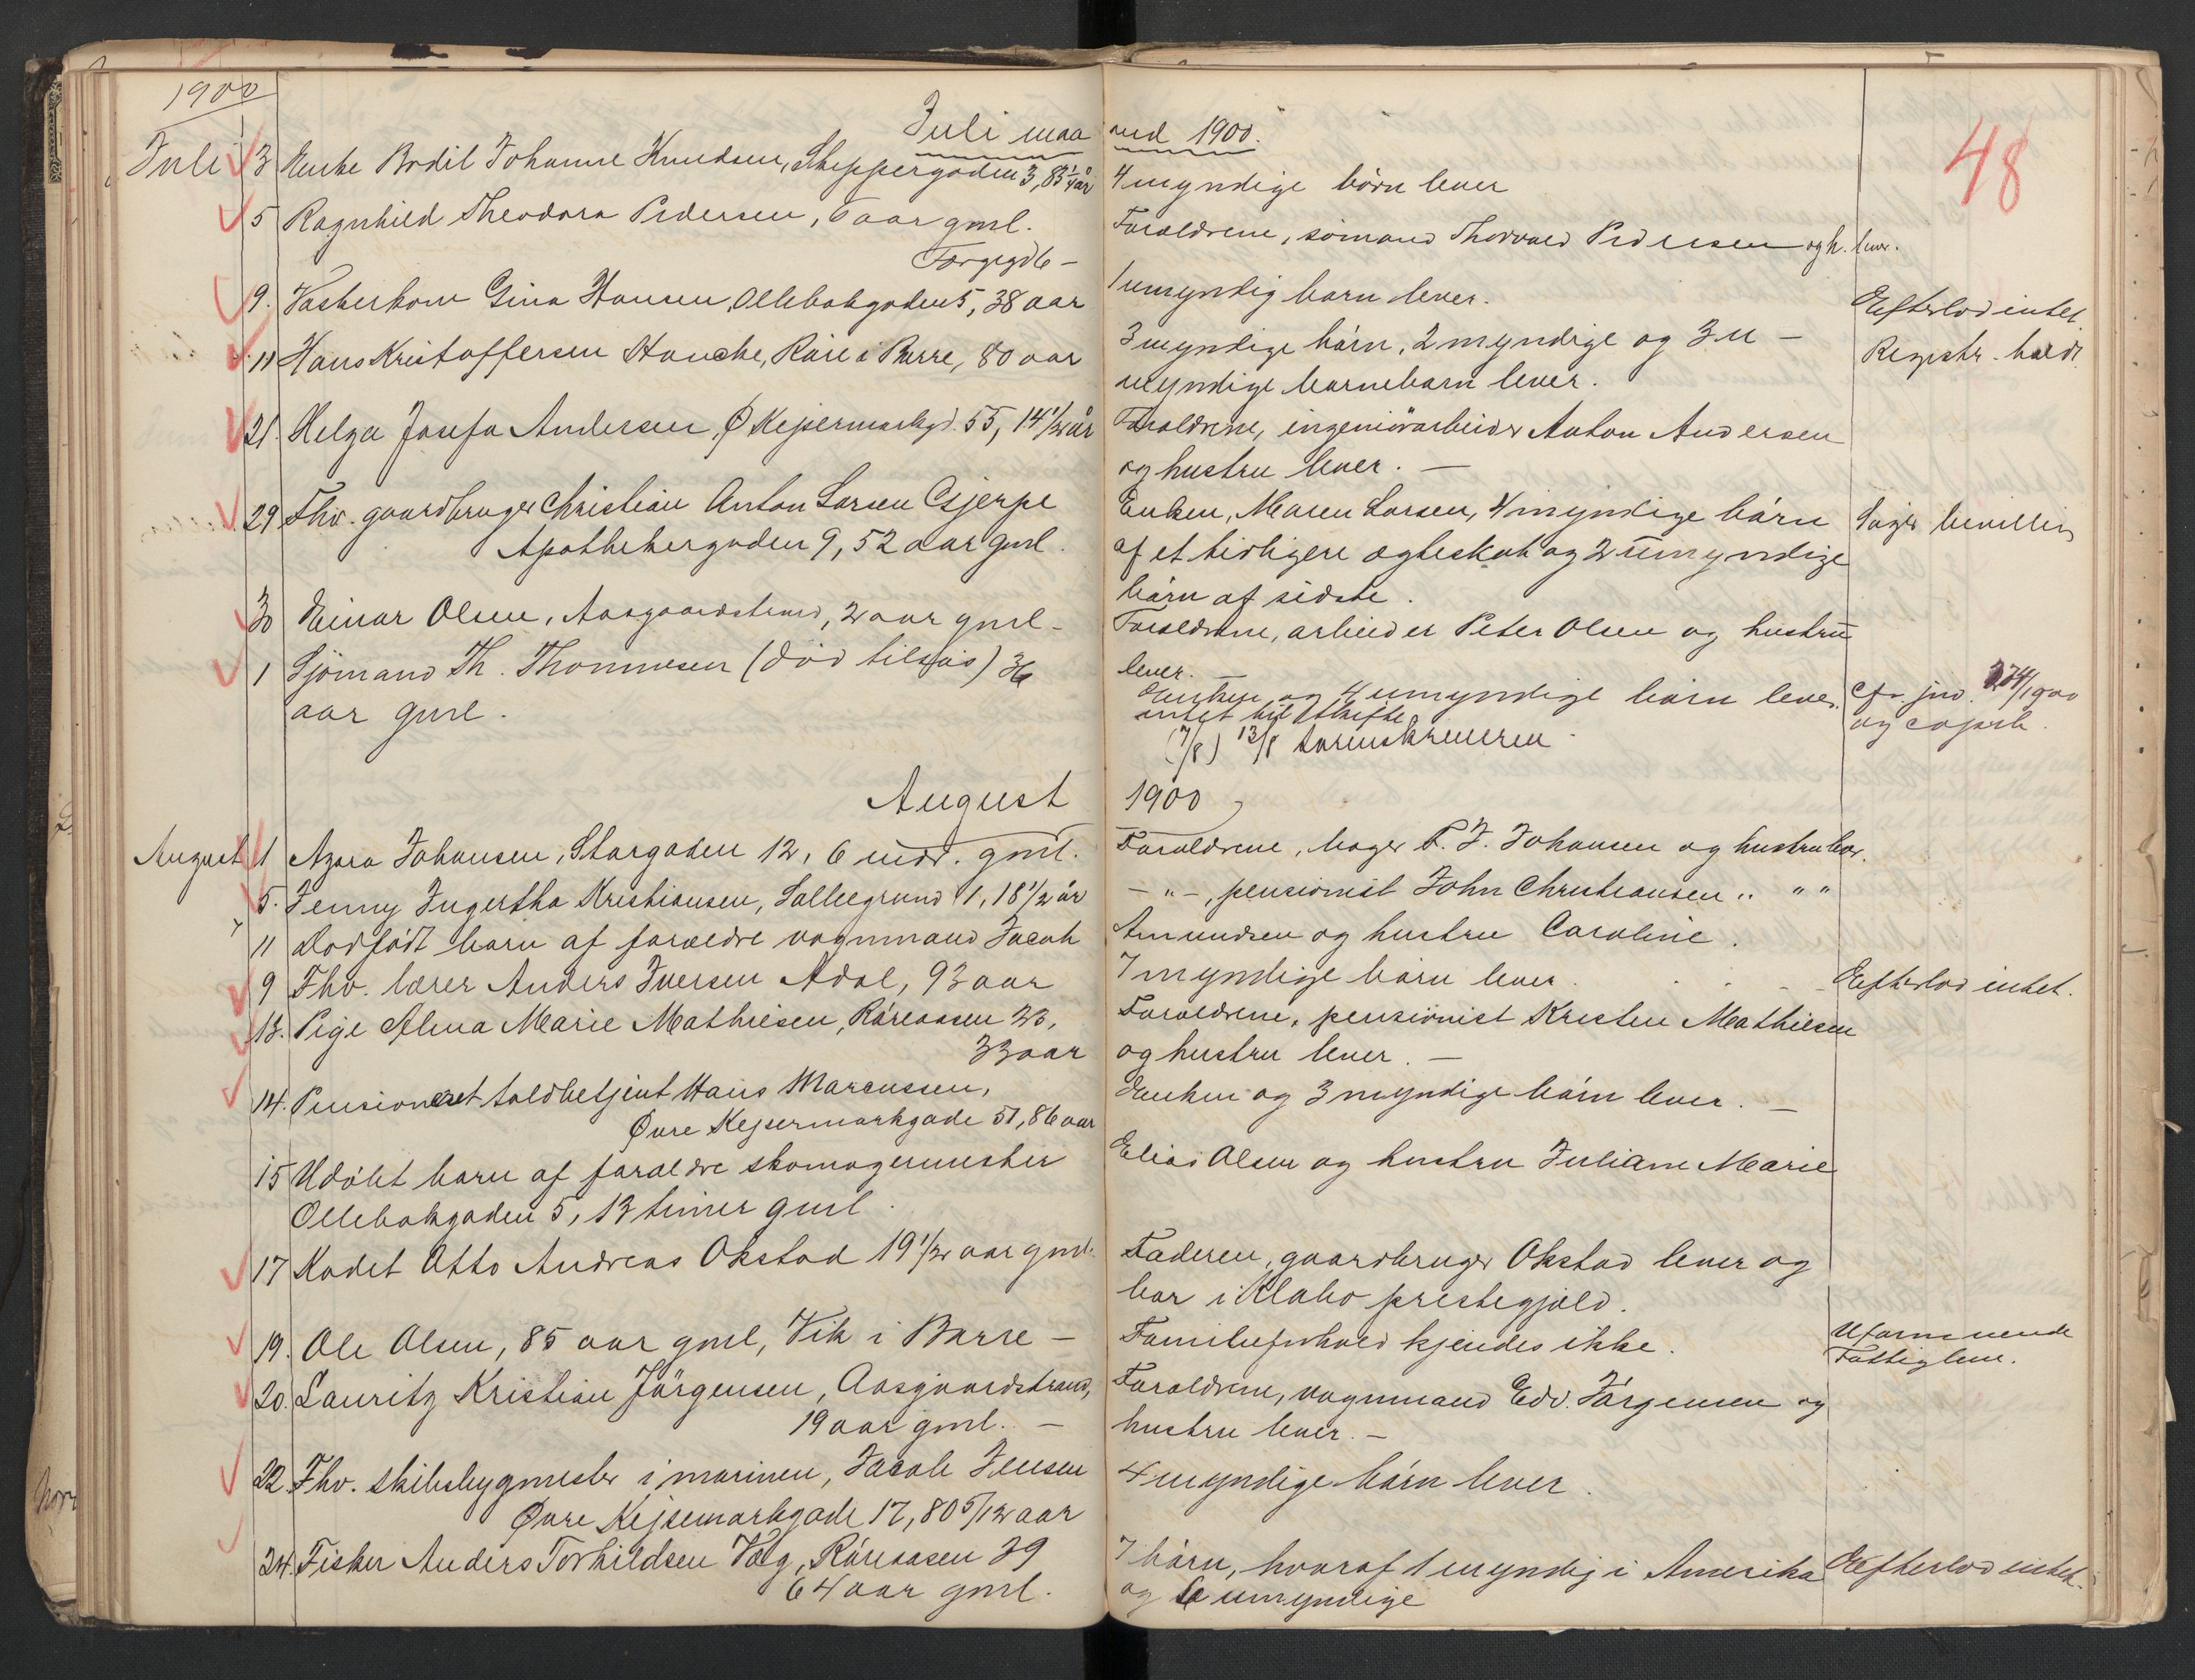 1900
Juli maa
Juli 3 Enke Bodil Johanne Knudsen, Skippergaden 3, 83 1/4 år
5 Ragnhild Theodora Pedersen, 6 aar gml.
Torvgd 6 -
9. Vaskerkone Gina Hansen Ollebakgaden 5, 38 aar
11 Hans Kristoffersen Hauche, Røre i Borre, 80 aar
21. Helga Josefa Andersen, Ø Kejsermarkgd. 55, 14 1/2 år
29 Fhv. gaardbruger Christian Anton Larsen Gjerpe
Apothekergaden 9, 52 aar gml.
30 Einar Olsen, Aasgaardstrand, 2 aar gml -
1 Sjömand Th. Thommesen (død tilsjøs) 36
aar gml.
August
August 1 Azora Johansen, Storgaden 12, 6 mdr. gml.
5. Jenny Ingertha Kristiansen, Solleegrund 1, 18 1/2 år
11 Dødfødt barn af forældre vognmand Jacob
9 Fhv. lærer Anders Iversen Adal, 93 aar
13. Pige Alma Marie Mathiesen, Røreaasen 23,
33 aar
14. Pensioneret toldbetjent Hans Marcussen,
Øvre Kejsermarkgade 51, 86 aar
15 Udöbt barn af forældre skomagermester
Ollebakgaden 5, 13 timer gml.
17 Kadet Otto Andreas Okstad 19 1/2 aar gml.
19. Ole Olsen, 85 aar gml, Vik i Borre -
20. Lauritz Kristian Jörgensen, Aasgaardstrand,
19 aar gml. -
22. Fhv. skibsbygmester i marinen, Jacob Jensen
Øvre Kejsemarkgade 17, 80 5/12 aar
24. Fisker Anders Torkildsen Vog, Röreaasen 29
64 aar gml.
ned 1900.
48
4 myndige børn lever
Forældrene, sömand Thorvald Pedersen og h. lever.
1 umyndig barn lever.
Efterlod intet
3 myndige børn, 2 myndige og 3 u -
myndige barnebarn lever.
Registr. holdt
Forældrene, ingeniörarbeider Anton Andersen
og hustru lever. -
Enken, Maren Larsen, 4 myndige børn
af et tidligere ægteskab og 2 umyndige
børn af sidste.
Søger bevilling
Forældrene, arbeider Peter Olsen og hustru
lever. -
Enken og 4 umyndige børn lever.
intet til skifte
(7/8) 13/8 sorenskriveren
Cfr. jno. 274/1900
og copieb.
1900
Forældrene, bager P. J. Johansen og hustru lever.
- " -, pensionist John Christiansen " " "
Amundsen og hustru Caroline.
7 myndige børn lever.
Efterlod intet.
Forældrene, pensionist Kristen Mathiesen
og hustru lever. -
Enken og 3 myndige børn lever. -
Elias Olsen og hustru Juliane Marie
Faderen, gaardbruger Okstad lever og
bor i Klæbo prestegjæld.
Familieforhold kjendes ikke.
Uformuende
Fattiglem.
Forældrene, vognmand Edv. Jörgensen og
hustru lever. -
4 myndige børn lever.
7 børn, hvoraf 1 myndig i Amerika
og 6 umyndige
Efterlod intet.